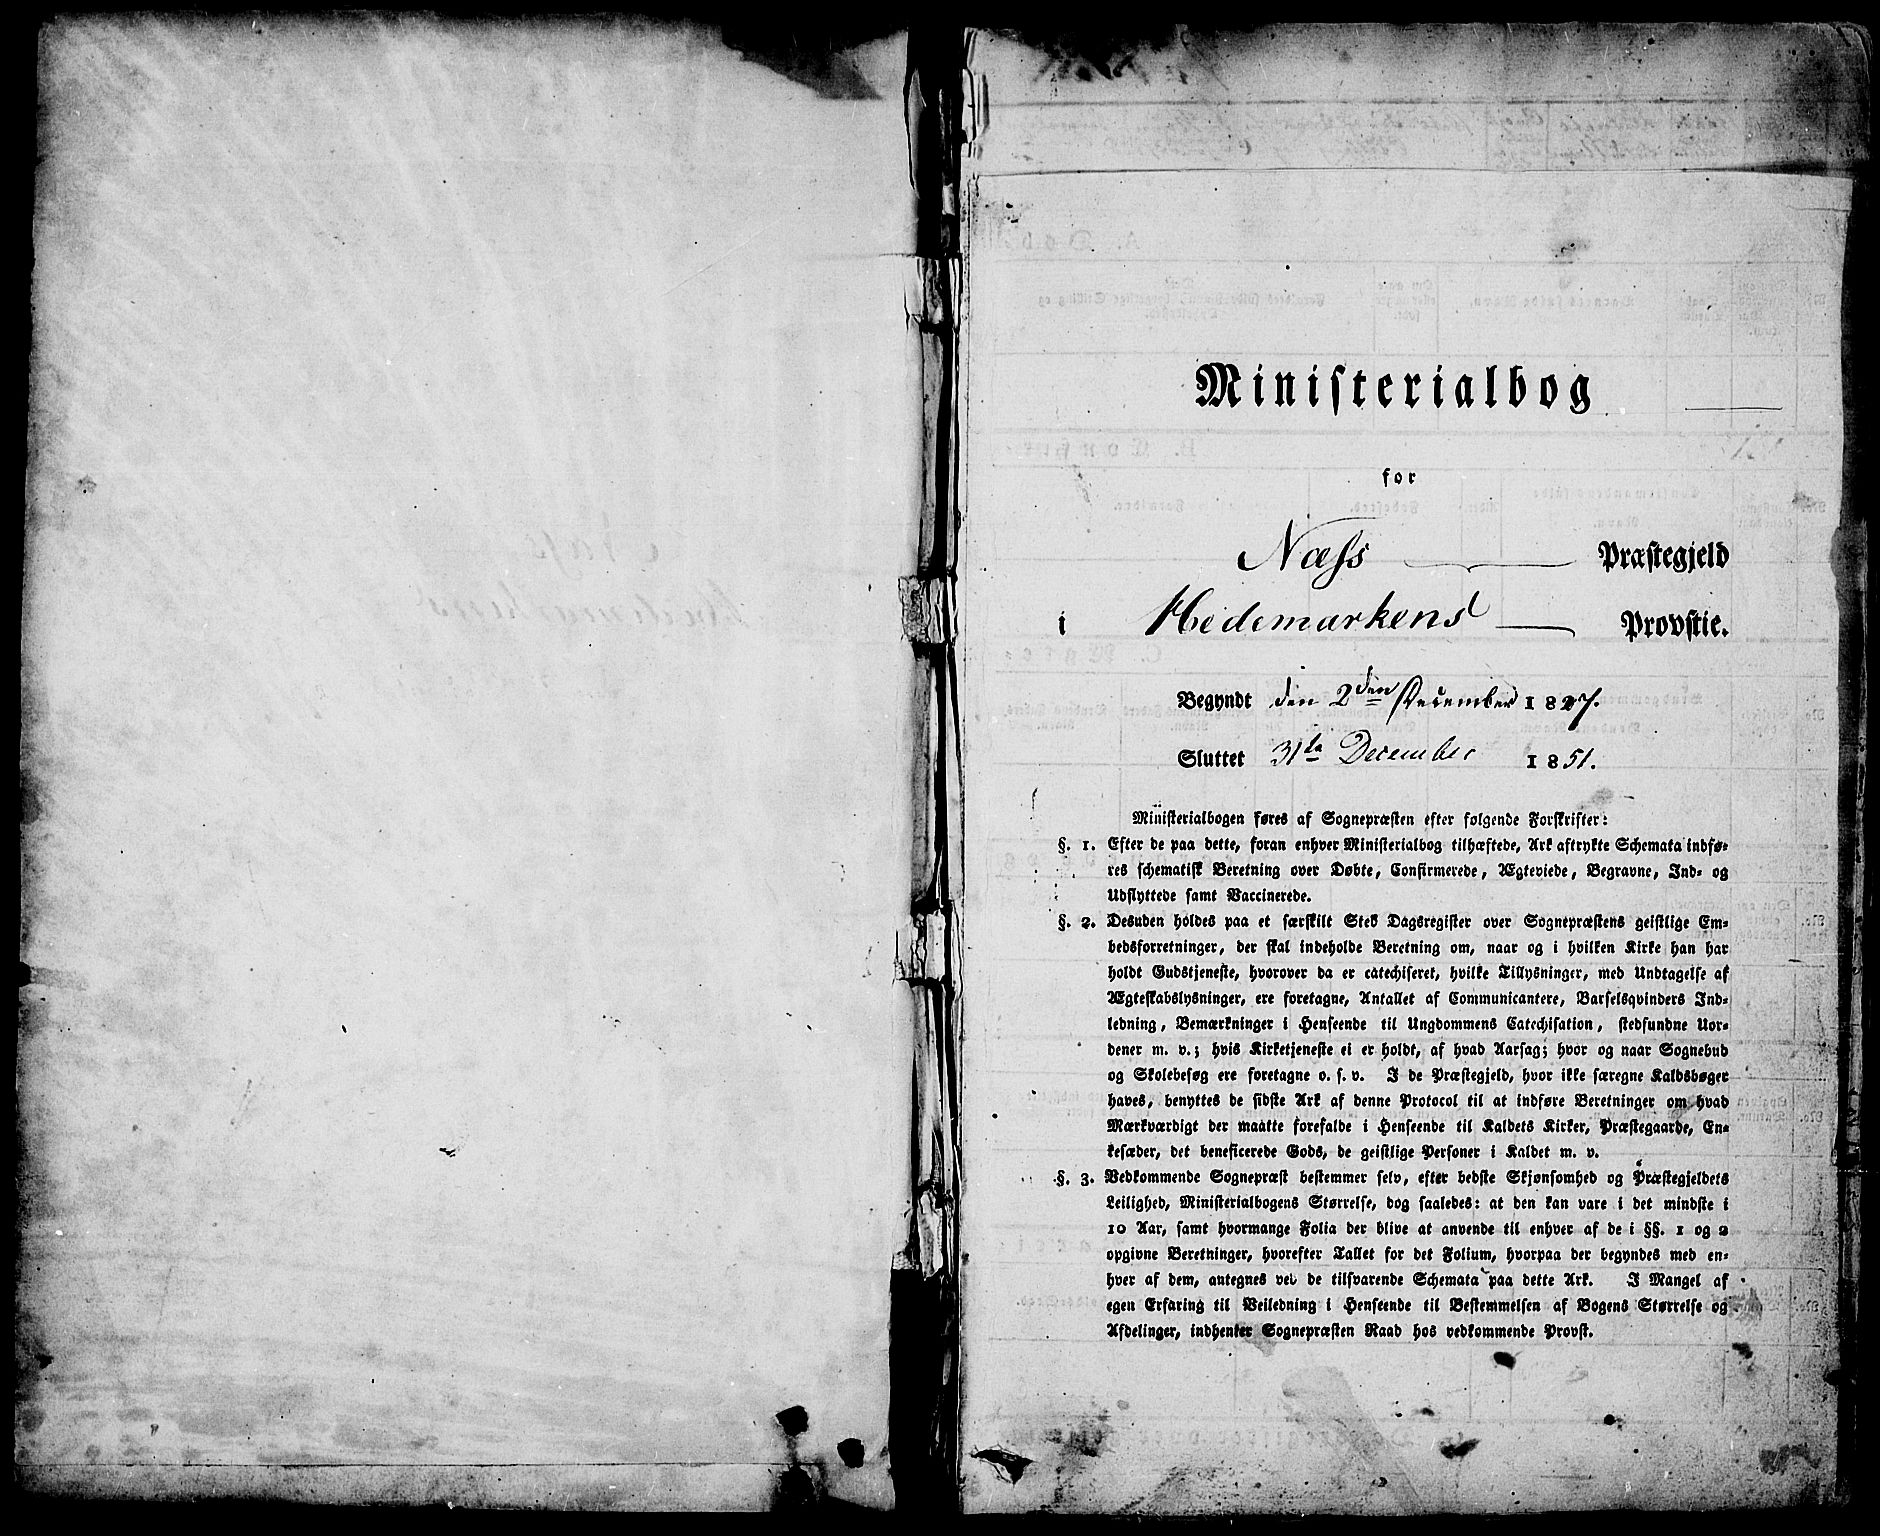 Ministerialbog
for
Næss Præstegjeld
i Hedemarkens Provstie.
Begyndt den 2den December 1827.
Sluttet 31te December 1851.
Ministerialbogen føres af Sognepræsten efter følgende Forskrifter:
§. 1. Efter de paa dette, foran enhver Ministerialbog tilhæftede, Ark aftrykte Schemata indfø-
res schematisk Beretning over Døbte, Confirmerede, Ægteviede, Begravne, Ind- og
Udflyttede samt Vaccinerede.
§. 2. Desuden holdes paa et særskilt Sted Dagsregister over Sognepræstens geistlige Em-
bedsforretninger, der skal indeholde Beretning om, naar og i hvilken Kirke han har
holdt Gudstjeneste, hvorover da er catechiseret, hvilke Tillysninger, med Undtagelse af
Ægteskabslysninger, ere foretagne, Antallet af Communicantere, Barselqvinders Ind-
ledning, Bemærkninger i Henseende til Ungdommens Catechisation, stedfundne Uor-
dener m. v.; hvis Kirketjeneste ei er holdt, af hvad Aarsag; hvor og naar Sognebud
og Skolebesøg ere foretagne o. s. v. I de Præstegjeld, hvor ikke særegne Kaldsbøger
haves, benyttes de sidste Ark af denne Protocol til at indføre Beretninger om hvad
Mærkværdigt der maatte forefalde i Henseende til Kaldets Kirker, Præstegaarde, En-
kesæder, det beneficerede Gods, de geistlige Personer i Kaldet m. v.
§. 3. Vedkommende Sognepræst bestemmer selv, efter bedste Skjønsomhed og Præstegjeldets
Leilighed, Ministerialbogens Størrelse, dog saaledes: at den kan vare i det mindste i
10 Aar, samt hvormange Folia der blive at anvende til enhver af de i §§. 1 og 2
opgivne Beretninger, hvorefter Tallet for det Folium, hvorpaa der begyndes med en-
hver af dem, antegnes ved de tilsvarende Schemata paa dette Ark. I Mangel af
egen Erfaring til Veiledning i Henseende til Bestemmelsen af Bogens Størrelse og
Afdelinger, indhenter Sognepræsten Raad hos vedkommende Provst.